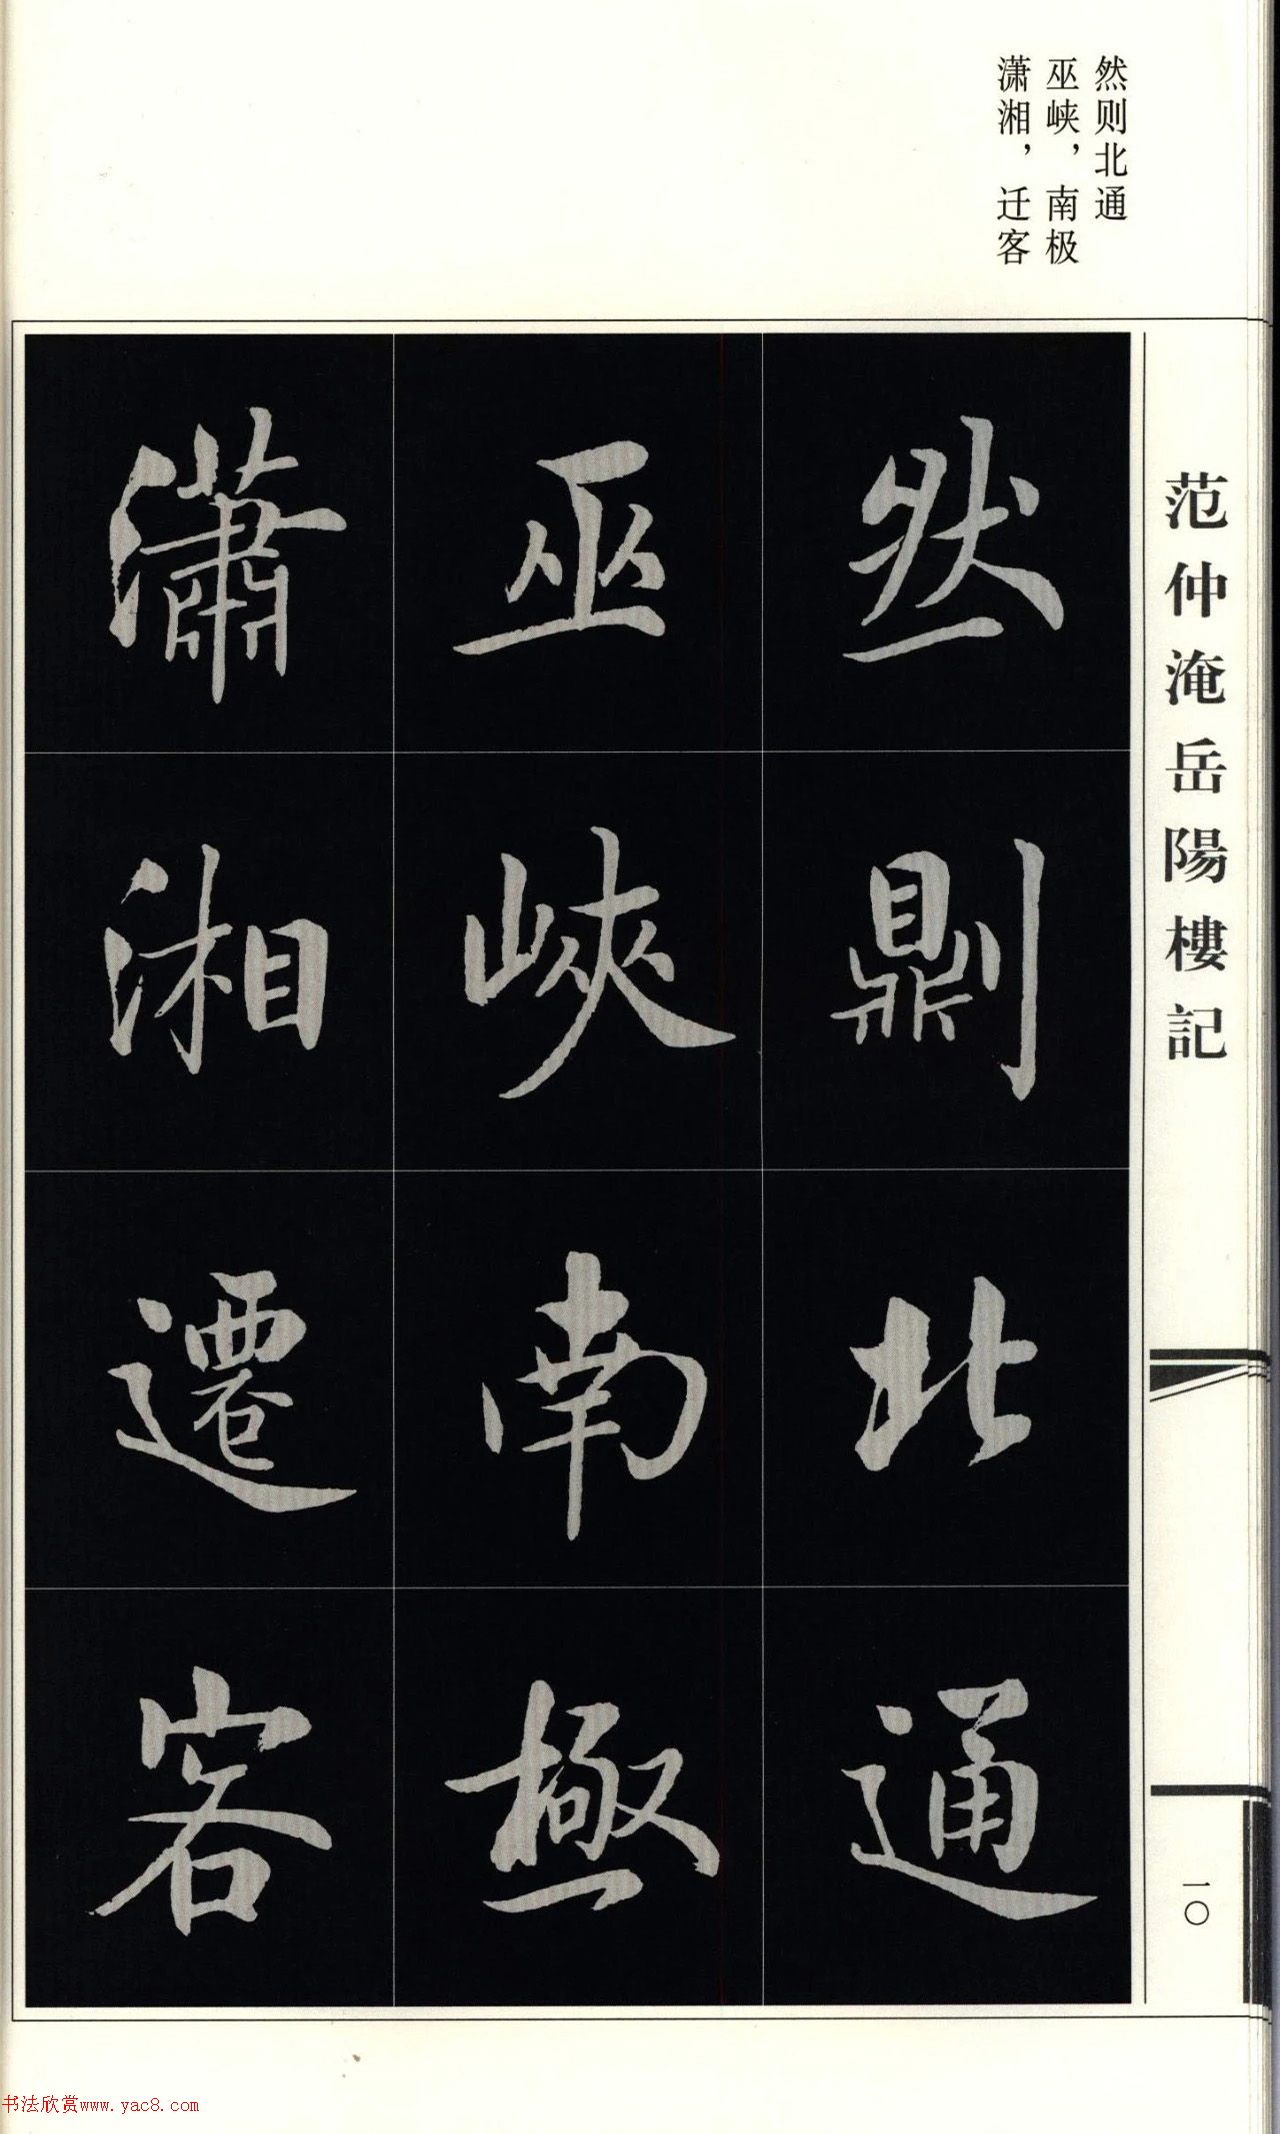 然则北通
巫峡，南极
潇湘，迁客
范仲淹岳陽樓記
然鼎刂北通
巫峽南極
瀟湘遷客
一〇
书法欣赏www.yac8.com